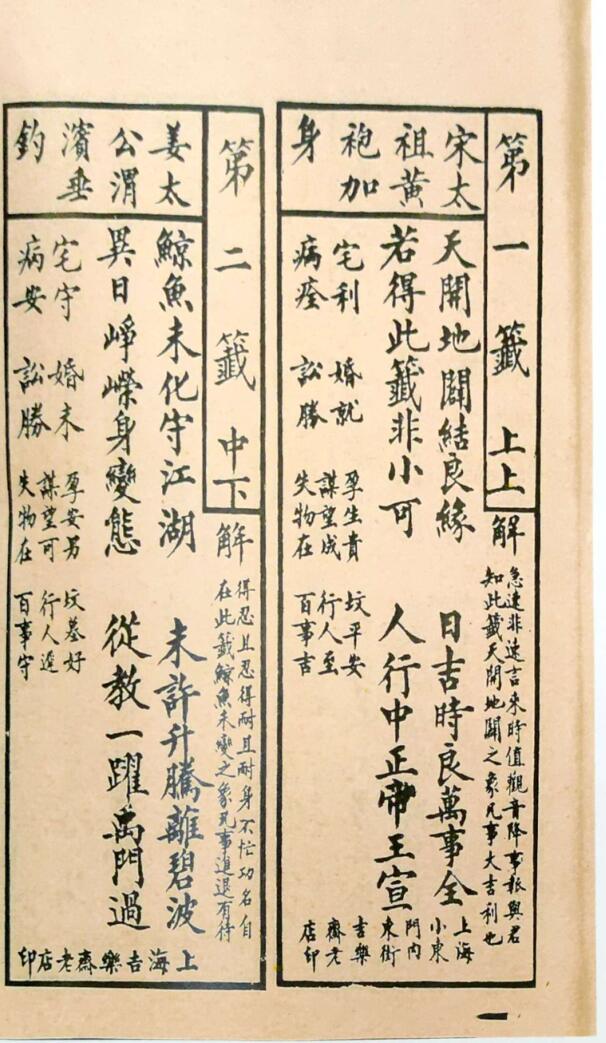 第一籤 上上
解
急速非遠言來時值觀音降事報與君
知此籤天開地闢之象凡事大吉利也
宋太
祖黃
袍加
身
天開地闢結良緣 日吉時良萬事全
若得此籤非小可 人行中正帝王宣
宅利 婚就 孕生貴 坟平安
謀望成 行人至
病痊 訟勝 失物在 百事吉
上海
小東
門內
東街
吉樂
齋老
店印
第二籤 中下
解
得忍且忍得耐且耐身不忙功名自
在此籤鯨魚未變之象凡事進退有待
姜太
公渭
濱垂
釣
鯨魚未化守江湖 未許升騰離碧波
異日崢嶸身變態 從教一躍禹門過
宅守 婚未 孕安男 坟墓好
謀望可 行人進
病安 訟勝 失物在 百事守
上海吉樂齋老店印
一